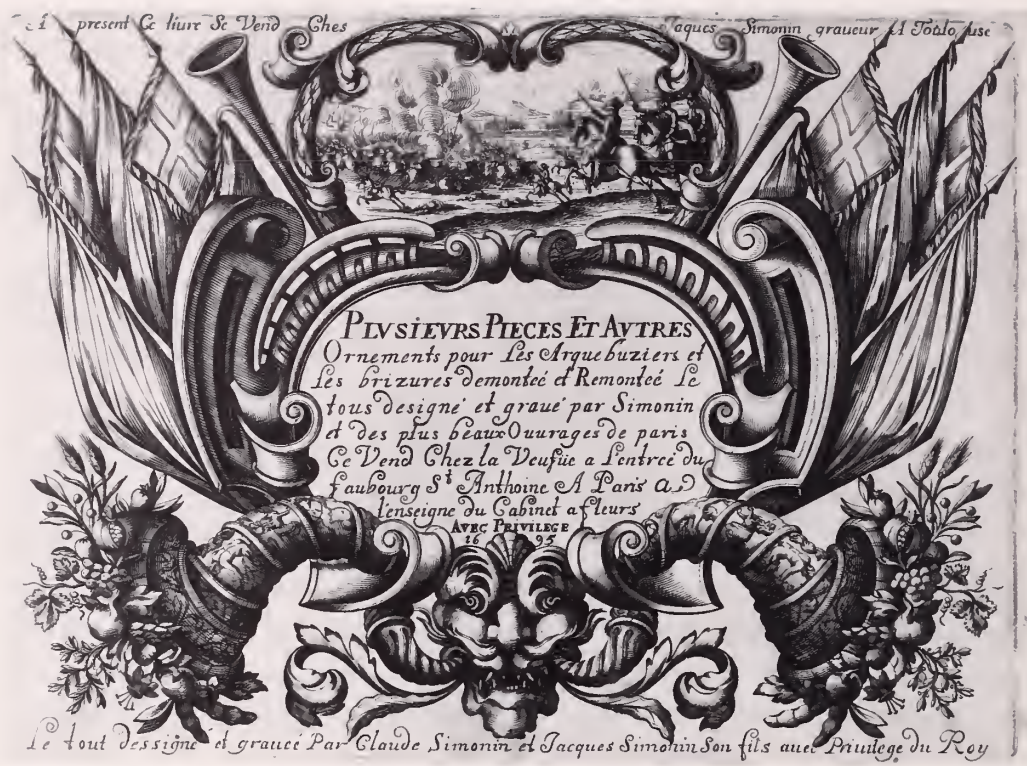 A present Ce liure Se Vend Ches Jaques Simonin graueur A Toulouse
PLVSIEVRS PIECES ET AVTRES
Ornements pour Les Arquebuziers et
Les brizures demonteé et Remonteé Le
tous designé et graué par Simonin
et des plus beaux Ouurages de paris
Ce Vend Chez la Veufüe a Lentreé du
faubourg St Anthoine A Paris a
l'enseigne du Cabinet a fleurs
AVEC PRIVILEGE
16 95
Le tout dessigné et graueé Par Claude Simonin et Jacques Simonin Son fils auec Priuilege du Roy